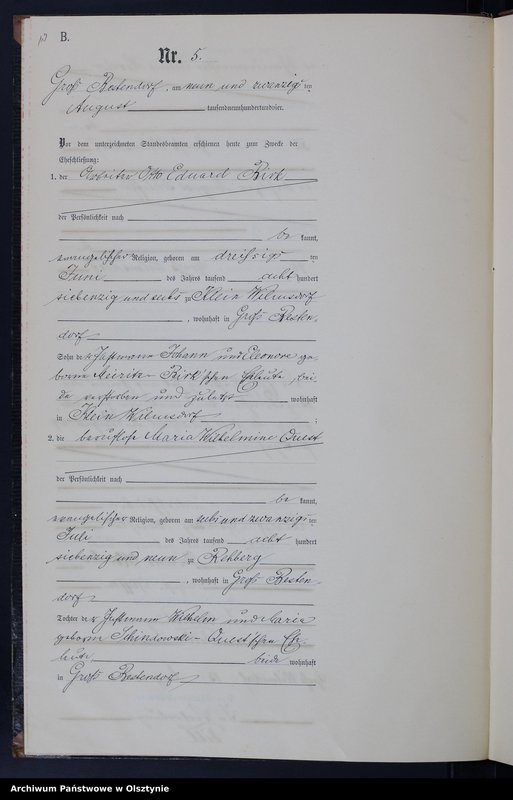 B.
Nr. 5.
Groß Bestendorf, am neun und zwanzigsten
August tausendneunhundertundvier.
Vor dem unterzeichneten Standesbeamten erschienen heute zum Zwecke der
Eheschließung:
1. der Arbeiter Otto Eduard Birk
der Persönlichkeit nach
be kannt,
evangelischer Religion, geboren am dreißigsten
Juni des Jahres tausend acht hundert
siebenzig und sechs zu Klein Wilmsdorf
, wohnhaft in Groß Besten-
dorf
Sohn der Instmann Johann und Eleonore ge-
borene Birk'schen Eheleute, bei-
de verstorben und zuletzt wohnhaft
in Klein Wilmsdorf ;
2. die berufslose Maria Wilhelmine Quest
der Persönlichkeit nach
be kannt,
evangelischer Religion, geboren am sechs und zwanzigsten
Juli des Jahres tausend acht hundert
siebenzig und neun zu Rehberg
, wohnhaft in Groß Besten-
dorf
Tochter der Instmann Wilhelm und Maria
geborne Schindowski - Quest'schen Ehe-
leute, beide wohnhaft
in Groß Bestendorf
Archiwum Państwowe w Olsztynie